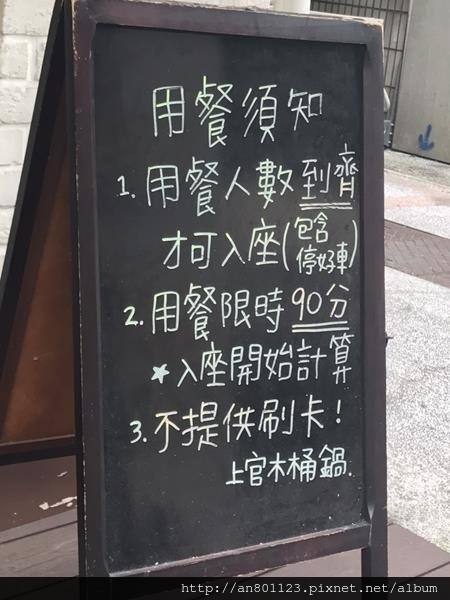 用餐須知
1. 用餐人數到齊
才可入座(包含停好車)
2. 用餐限時90分
★入座開始計算
3. 不提供刷卡！
上官木桶鍋.
http://an801123.pixnet.net/album